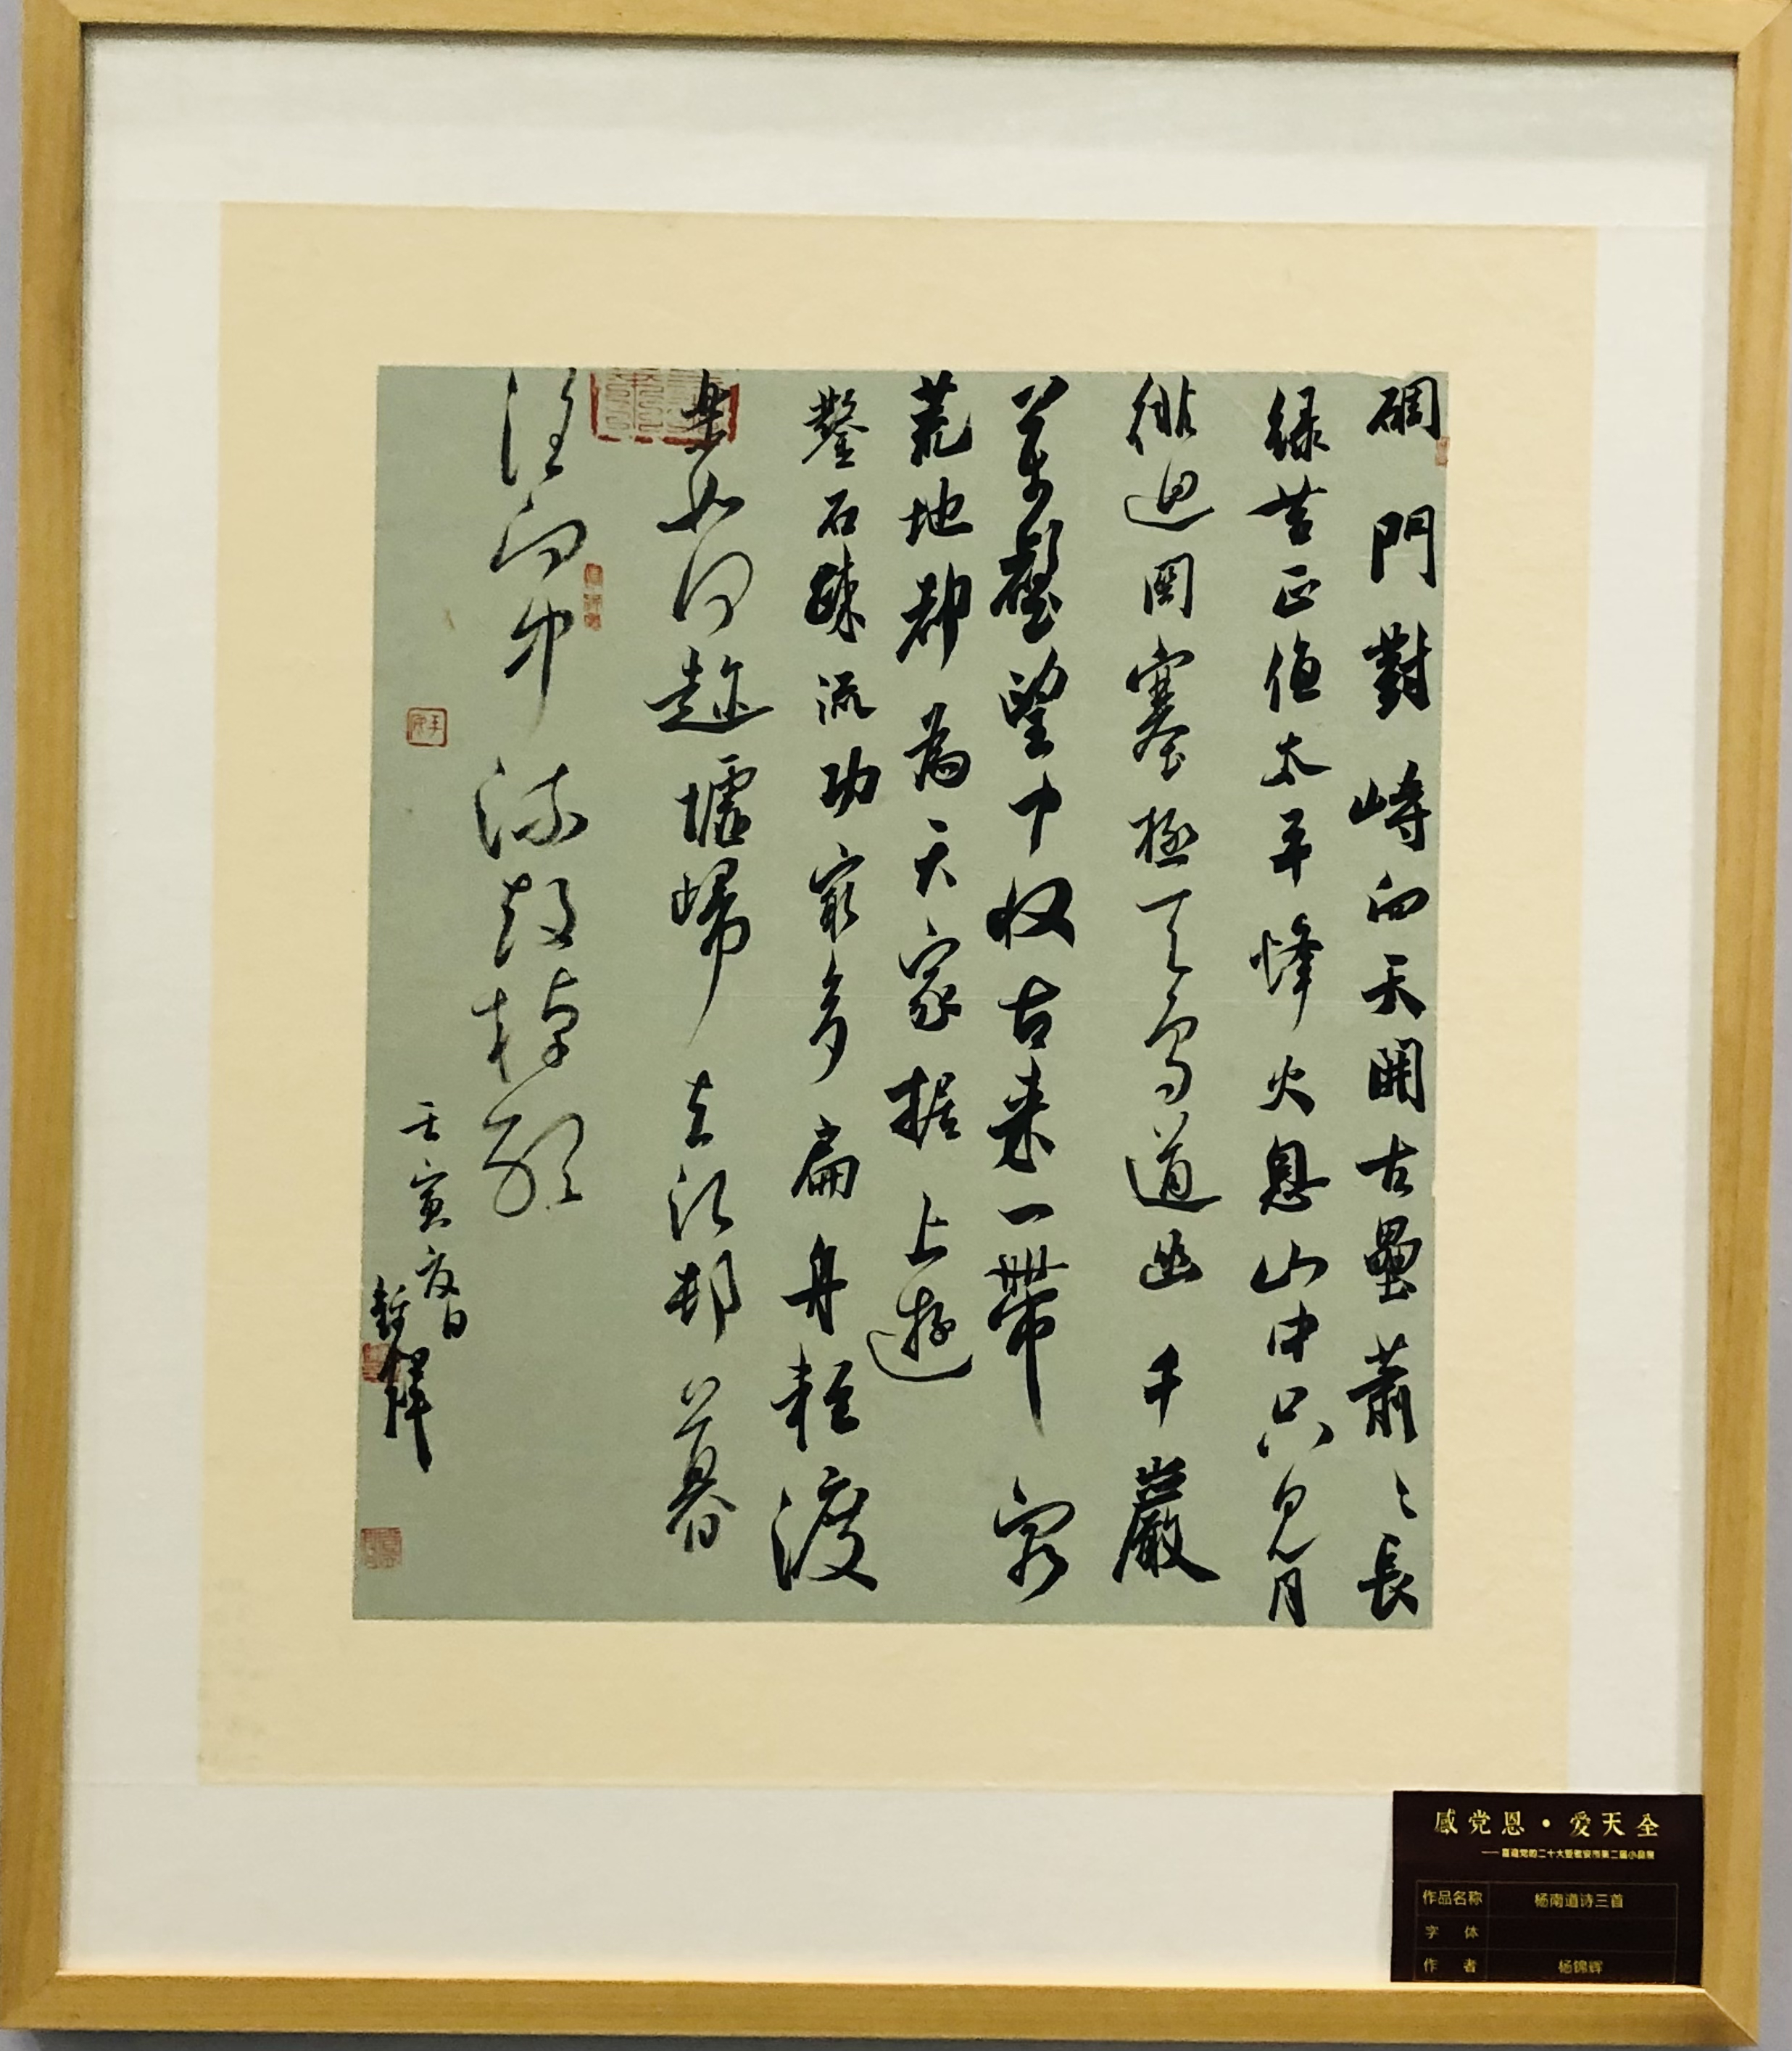 碉門對峙向天開古壘蕭〻長
綠苔正值太平烽火息山中只見月
徘迴関塞極天鳥道幽千巖
萬壑望中收古來一帶窮
荒地却為天家据上遊
鑿石疎流功最多扁舟輕渡
樂如何趁墟歸去江邨暮
向中流鼓棹歌
壬寅夏日
錦輝
感党恩·爱天全
——喜迎党的二十大暨雅安市第二届小品展
作品名称 杨南道诗三首
字 体
作 者 杨锦辉